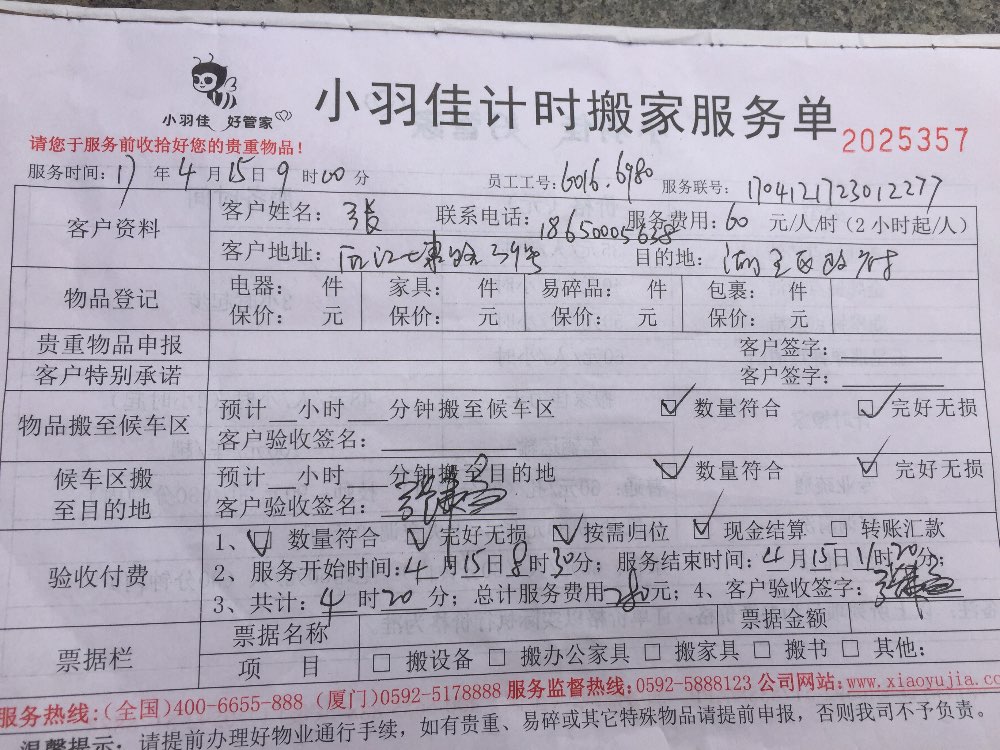 小羽佳 好管家
小羽佳计时搬家服务单
2025357
请您于服务前收拾好您的贵重物品!
服务时间:17年4月15日9时00分 员工工号:6016.6980 服务联号:1704121723012277
客户资料
客户姓名:张 联系电话:18650005638 服务费用:60元/人/时(2小时起/人)
客户地址: 目的地:湖里区政府
物品登记
电器: 件 家具: 件 易碎品: 件 包裹: 件
保价: 元 保价: 元 保价: 元 保价: 元
贵重物品申报 客户签字:
客户特别承诺 客户签字:
物品搬至候车区
预计__小时___分钟搬至候车区 数量符合 完好无损
客户验收签名:
候车区搬至目的地
预计__小时___分钟搬至目的地 数量符合 完好无损
客户验收签名:
验收付费
1、数量符合 完好无损 按需归位 现金结算 转账汇款
2、服务开始时间:4月15日8时30分;服务结束时间:4月15日11时20分;
3、共计:4时20分;总计服务费用280元;4、客户验收签字:
票据栏
票据名称 票据金额
项 目 搬设备 搬办公家具 搬家具 搬书 其他:
服务热线:(全国)400-6655-888 (厦门)0592-5178888 服务监督热线:0592-5888123 公司网站:www.xiaoyujia.co
温馨提示:请提前办理好物业通行手续,如有贵重、易碎或其它特殊物品请提前申报,否则我司不予负责。